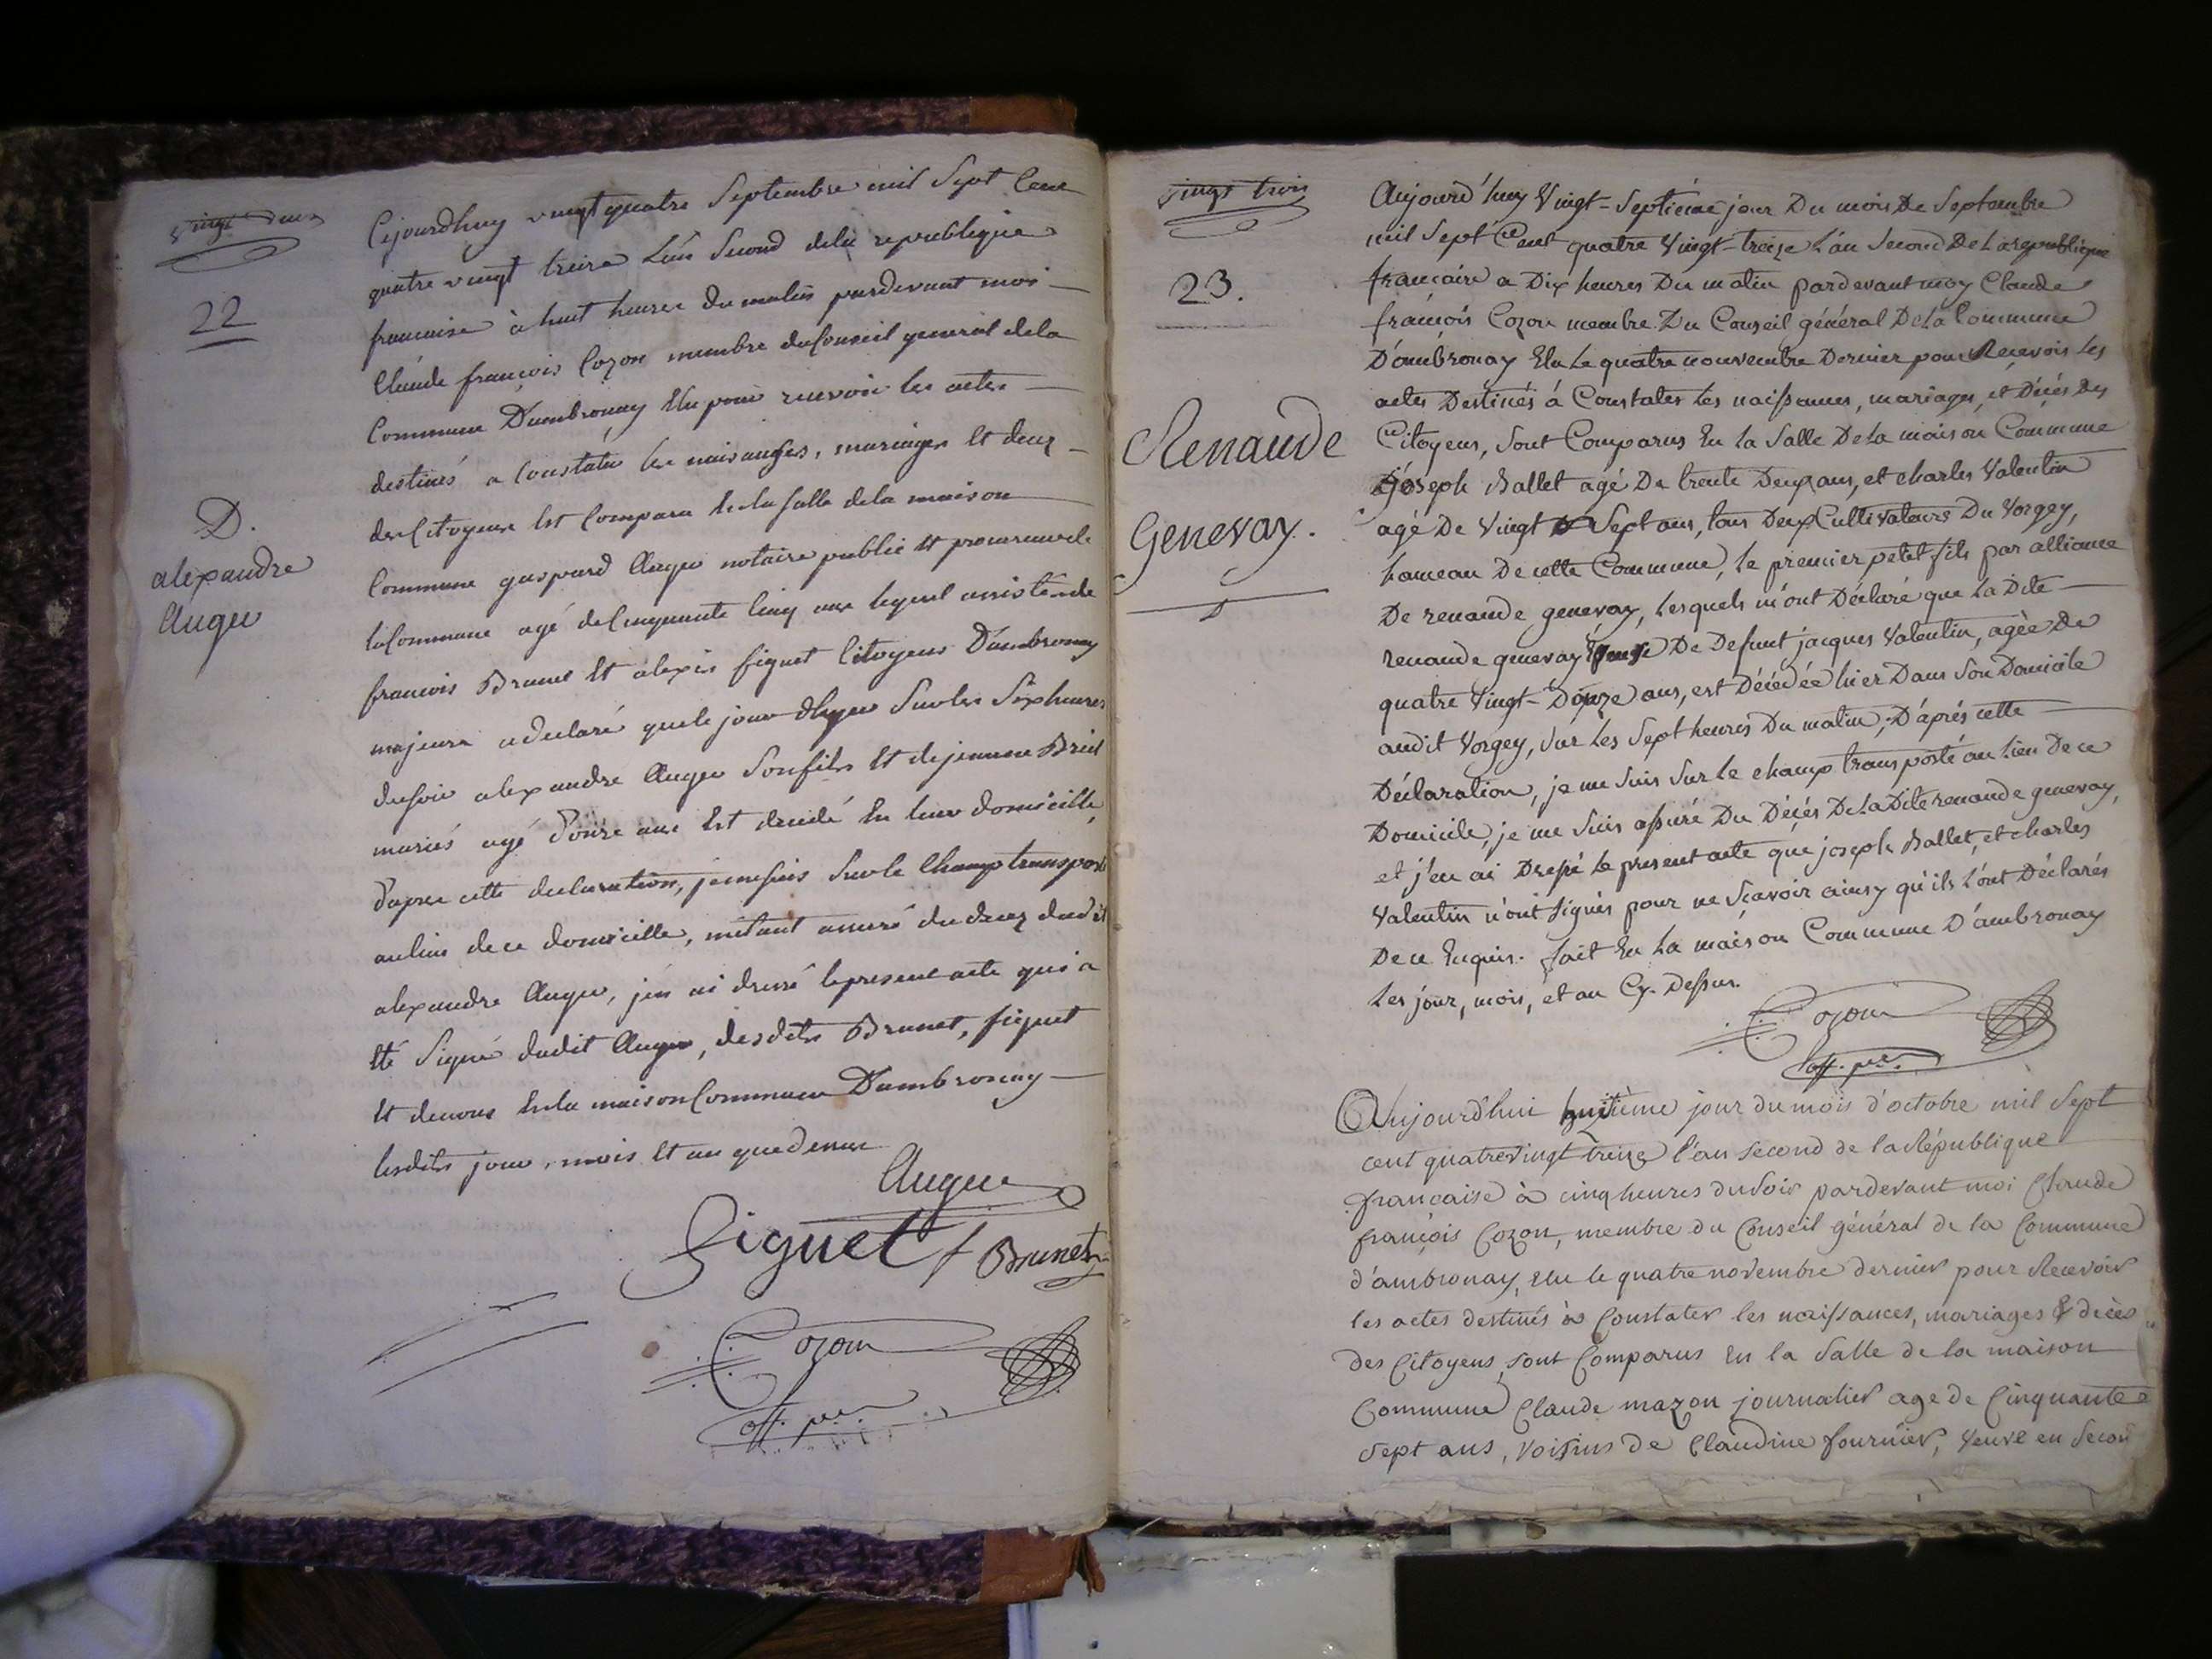 vingt deux
22
D.
alexandre
Auger
Cejourdhuy vingt quatre Septembre mil Sept Cent
quatre vingt treize L'an Second dela republique
francaise à huit heures du matin pardevant moi
Claude françois Cozon membre du Conseil general dela
Commune Dambronay Elu pour recevoir les actes
destinés a Constater les naisances, mariages Et deces
des Citoyens Est Comparu En la Salle dela maison
Commune gaspard Auger notaire public Et procureur de
la Commune agé de Cinquante Cinq ans lequel assisté de
francois Brunet Et alexis figuet Citoyens Dambronay
majeurs a declaré que le jour dhyer Sur les Six heures
du soir alexandre Auger Son fils Et de jeanne
mariés agé d'onze ans Est decedé En leur domicille,
d'apres cette declaration, je me suis Sur le Champ transporté
au lieu de ce domicille, m'etant assuré du deces dudit
alexandre Auger, j'en ai dressé le present acte qui a
Eté Signé dudit Auger, desdits Brunet, figuet
Et de nous En la maison Commune Dambronay
lesdits jour, mois Et an que dessus
Auger
Figuet f Brunet
Cozon
off. pu.
vingt trois
23.
Renaude
Genevay.
D
Aujourd'huy Vingt-Septieme jour Du mois De Septembre
mil Sept Cent quatre Vingt-treize L'an Second De La republique
francaise a Dix heures Du matin pardevant moy Claude
françois Cozon membre Du Conseil général De la Commune
D'ambronay Elu Le quatre nouvembre Dernier pour Recevoir Les
actes Destinés à Constater Les naissances, mariages, et Décés Des
Citoyens, Sont Comparus En La Salle De la maison Commune
joseph Ballet agé De trente Deux ans, et charles Valentin
agé De Vingt Sept ans, tous Deux Cultivateurs Du Vorgey,
hameau De cette Commune, le premier petit fils par alliance
De renaude genevay, Lesquels m'ont Déclaré que La Dite
renaude genevay De Defunt jacques Valentin, agée De
quatre Vingt-Douze ans, est Décédée hier Dans Son Domicile
audit Vorgey, Sur Les Sept heures Du matin; D'aprés cette
Déclaration, je me Suis Sur Le champ transporté au Lieu De ce
Domicile, je me Suis assuré Du Décés De La Dite renaude genevay,
et j'en ai Dressé Le present acte que joseph Ballet, et charles
Valentin n'ont Signés pour ne Scavoir ainsy qu'ils L'ont Déclarés
De ce Enquis. fait En La maison Commune D'ambronay
Les jour, mois, et an Cy-Dessus.
Cozon
off. pu.
Aujourd'hui huitième jour du mois d'octobre mil Sept
cent quatrevingt treize l'an second de la République
française à cinq heures du soir pardevant moi Claude
françois Cozon, membre du Conseil général de la Commune
d'ambronay, Elu le quatre novembre dernier pour Recevoir
les actes destinés à Constater les naissances, mariages & décès
des Citoyens, sont Comparus En la Salle de la maison
Commune Claude mazon journalier age de Cinquante
sept ans, voisins de Claudine fournier, veuve en Secon